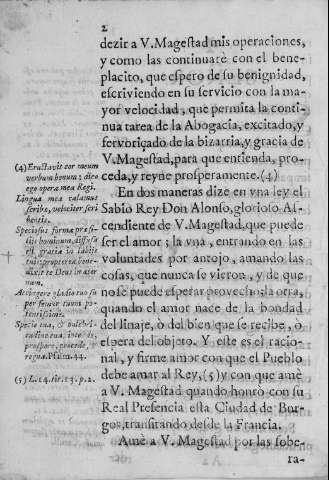 2
dezir a V. Magestad mis operaciones,
y como las continuarè con el bene-
placito, que espero de su benignidad,
escriviendo en su servicio con la ma-
yor velocidad, que permita la conti-
nua tarea de la Abogacia, excitado, y
fervoriçado de la bizarria, y gracia de
V. Magestad, para que entienda, pro-
ceda, y reyne prosperamente. (4)
En dos maneras dize en vna ley el
Sabio Rey Don Alonso, glorioso As-
cendiente de V. Magestad, que puede
ser el amor; la vna, entrando en las
voluntades por antojo, amando las
cosas, que nunca se vieron, y de que
no se puede esperar provecho; la otra,
quando el amor nace de la bondad
del linaje, ò del bien que se recibe, ò
espera del objeto. Y este es el racio-
nal, y firme amor con que el Pueblo
debe amar al Rey, (5) y con que amè
a V. Magestad quando honrò con su
Real Presencia esta Ciudad de Bur-
gos, transitando desde la Francia.
Amè a V. Magestad por las sobe-
ra-
(4) Eructavit cor meum
verbum bonum: dico
ego opera mea Regi.
Lingua mea calamus
scribæ, velociter scri
bentis.
Speciosus forma præ fi-
lijs hominum, diffusa
est gratia in labijs
tuis: propterea bene-
dixit te Deus in æter
num.
Accingere gladio tuo su
per femur tuum po-
tentissime.
Specie tua, & pulchri-
tudine tua, intende,
prospere, procede, &
regna. Psalm. 44.
(5) L. 14. tit. 13. p. 2.